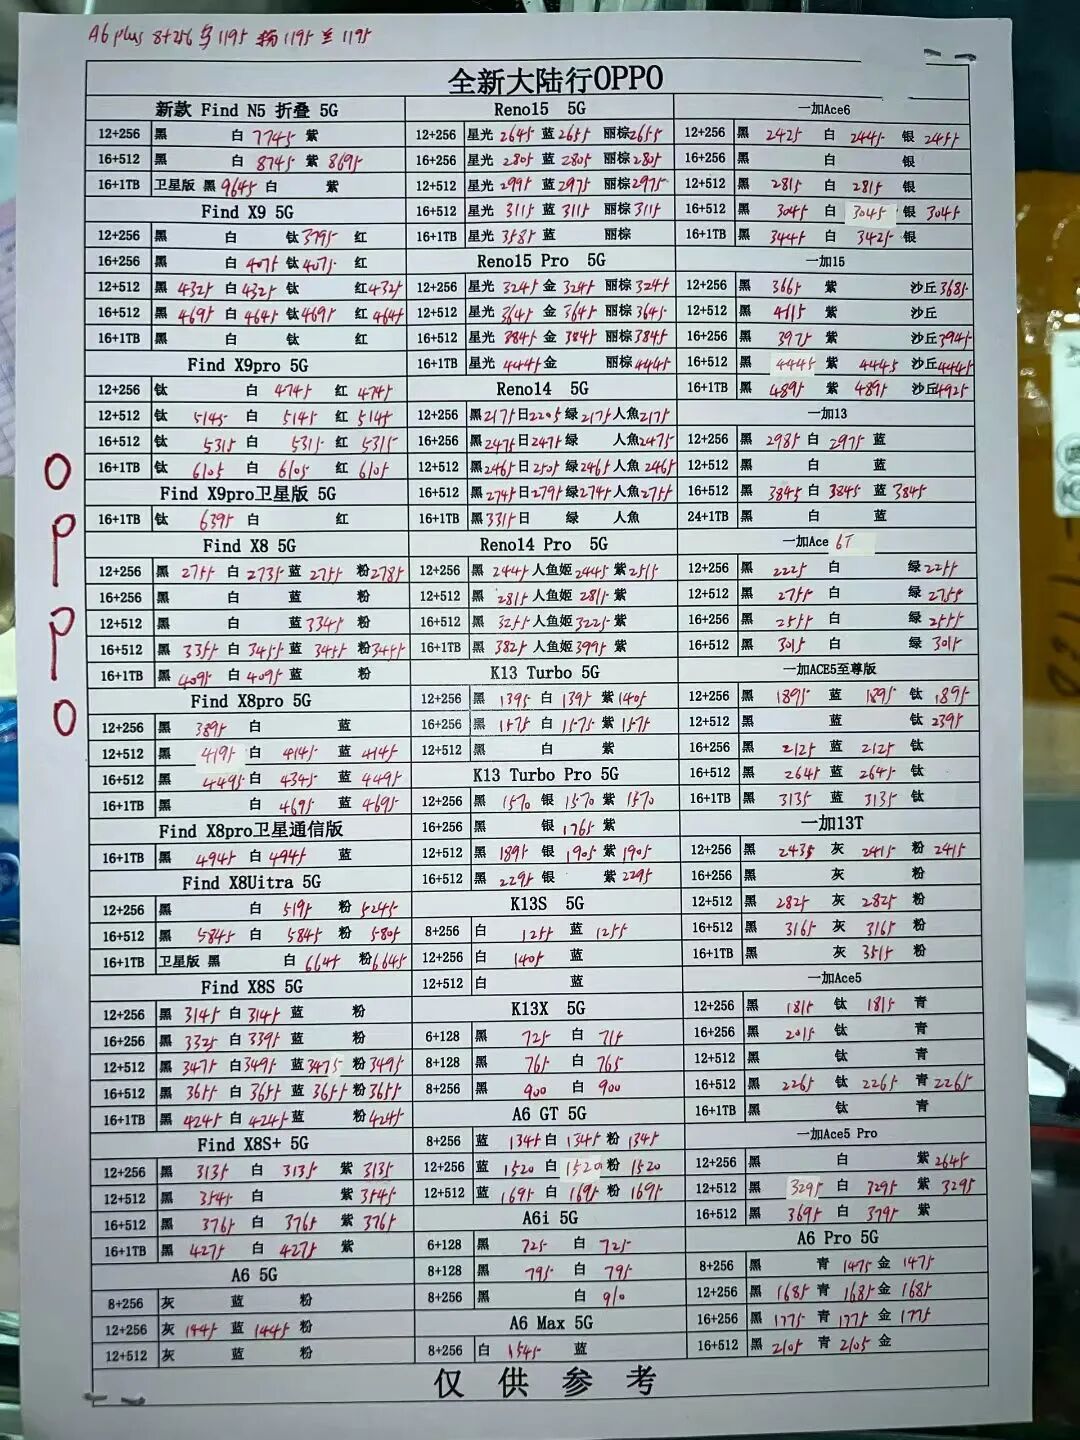 A6 plus 8+256 1195 1195 1195
全新大陆行OPPO
OPPO
新款 Find N5 折叠 5G
12+256 黑 白 7745 紫
16+512 黑 白 8745 紫 8695
16+1TB 卫星版 黑 9645 白 紫
Find X9 5G
12+256 黑 白 钛 3795 红
16+256 黑 白 4075 钛 4075 红
12+512 黑 4325 白 4325 钛 红 4325
16+512 黑 4695 白 4645 钛 4695 红 4645
16+1TB 黑 白 钛 红
Find X9pro 5G
12+256 钛 白 4745 红 4745
12+512 钛 5145 白 5145 红 5145
16+512 钛 5315 白 5315 红 5315
16+1TB 钛 6105 白 6105 红 6105
Find X9pro卫星版 5G
16+1TB 钛 6395 白 红
Find X8 5G
12+256 黑 2755 白 2735 蓝 2755 粉 2785
16+256 黑 白 蓝 粉
12+512 黑 白 蓝 3345 粉
16+512 黑 3355 白 3455 蓝 3455 粉 3455
16+1TB 黑 4095 白 4095 蓝 粉
Find X8pro 5G
12+256 黑 3895 白 蓝
12+512 黑 4195 白 4145 蓝 4145
16+512 黑 4495 白 4345 蓝 4495
16+1TB 黑 白 4695 蓝 4695
Find X8pro卫星通信版
16+1TB 黑 4945 白 4945 蓝
Find X8Uitra 5G
12+256 黑 白 5195 粉 5245
16+512 黑 5845 白 5845 粉 5805
16+1TB 卫星版 黑 白 6645 粉 6645
Find X8S 5G
12+256 黑 3145 白 3145 蓝 粉
16+256 黑 3325 白 3395 蓝 粉
12+512 黑 3475 白 3495 蓝 3475 粉 3495
16+512 黑 3655 白 3655 蓝 3655 粉 3655
16+1TB 黑 4245 白 4245 蓝 粉 4245
Find X8S+ 5G
12+256 黑 3135 白 3135 紫 3135
12+512 黑 3545 白 紫 3545
16+512 黑 3765 白 3765 紫 3765
16+1TB 黑 4275 白 4275 紫
A6 5G
8+256 灰 蓝 粉
12+256 灰 1445 蓝 1445 粉
12+512 灰 蓝 粉
Reno15 5G
12+256 星光 2645 蓝 2655 丽棕 2655
16+256 星光 2805 蓝 2805 丽棕 2805
12+512 星光 2995 蓝 2975 丽棕 2975
16+512 星光 3115 蓝 3115 丽棕 3115
16+1TB 星光 3585 蓝 丽棕
Reno15 Pro 5G
12+256 星光 3245 金 3245 丽棕 3245
12+512 星光 3645 金 3645 丽棕 3645
16+512 星光 3845 金 3845 丽棕 3845
16+1TB 星光 4445 金 丽棕 4445
Reno14 5G
12+256 黑 2175 日 2205 绿 2175 人魚 2175
16+256 黑 2475 日 2475 绿 人魚 2475
12+512 黑 2465 日 2505 绿 2465 人魚 2465
16+512 黑 2745 日 2795 绿 2745 人魚 2755
16+1TB 黑 3315 日 绿 人魚
Reno14 Pro 5G
12+256 黑 2445 人鱼姬 2445 紫 2515
12+512 黑 2815 人鱼姬 2815 紫
16+512 黑 3255 人鱼姬 3225 紫
16+1TB 黑 3825 人鱼姬 3995 紫
K13 Turbo 5G
12+256 黑 1395 白 1395 紫 1405
16+256 黑 1575 白 1575 紫 1575
12+512 黑 白 紫
K13 Turbo Pro 5G
12+256 黑 1570 银 1570 紫 1570
16+256 黑 银 1765 紫
12+512 黑 1895 银 1905 紫 1905
16+512 黑 2295 银 紫 2295
K13S 5G
8+256 白 1255 蓝 1255
12+256 白 1405 蓝
12+512 白 蓝
K13X 5G
6+128 黑 725 白 715
8+128 黑 765 白 765
8+256 黑 900 白 900
A6 GT 5G
8+256 蓝 1345 白 1345 粉 1345
12+256 蓝 1520 白 1520 粉 1520
12+512 蓝 1695 白 1695 粉 1695
A6i 5G
6+128 黑 725 白 725
8+128 黑 795 白 795
8+256 黑 白 910
A6 Max 5G
8+256 白 1545 蓝
一加Ace6
12+256 黑 2425 白 2445 银 2455
16+256 黑 白 银
12+512 黑 2815 白 2815 银
16+512 黑 3045 白 3045 银 3045
16+1TB 黑 3445 白 3425 银
一加15
12+256 黑 3665 紫 沙丘 3685
12+512 黑 4115 紫 沙丘
16+256 黑 3925 紫 沙丘 3945
16+512 黑 4445 紫 4445 沙丘 4445
16+1TB 黑 4895 紫 4895 沙丘 4925
一加13
12+256 黑 2985 白 2975 蓝
12+512 黑 白 蓝
16+512 黑 3845 白 3845 蓝 3845
24+1TB 黑 白 蓝
一加Ace 6T
12+256 黑 2225 白 绿 2255
12+512 黑 2755 白 绿 2755
16+256 黑 2555 白 绿 2555
16+512 黑 3015 白 绿 3015
一加ACE5至尊版
12+256 黑 1895 蓝 1895 钛 1895
12+512 黑 蓝 钛 2395
16+256 黑 2125 蓝 2125 钛
16+512 黑 2645 蓝 2645 钛
16+1TB 黑 3135 蓝 3135 钛
一加13T
12+256 黑 2435 灰 2415 粉 2415
16+256 黑 灰 粉
12+512 黑 2825 灰 2825 粉
16+512 黑 3165 灰 3165 粉
16+1TB 黑 灰 3515 粉
一加Ace5
12+256 黑 1815 钛 1815 青
16+256 黑 2015 钛 青
12+512 黑 钛 青
16+512 黑 2265 钛 2265 青 2265
16+1TB 黑 钛 青
一加Ace5 Pro
12+256 黑 白 紫 2645
12+512 黑 3295 白 3295 紫 3295
16+512 黑 3695 白 3795 紫
A6 Pro 5G
8+256 黑 青 1475 金 1475
12+256 黑 1685 青 1685 金 1685
16+256 黑 1775 青 1775 金 1775
16+512 黑 2105 青 2105 金
仅供参考